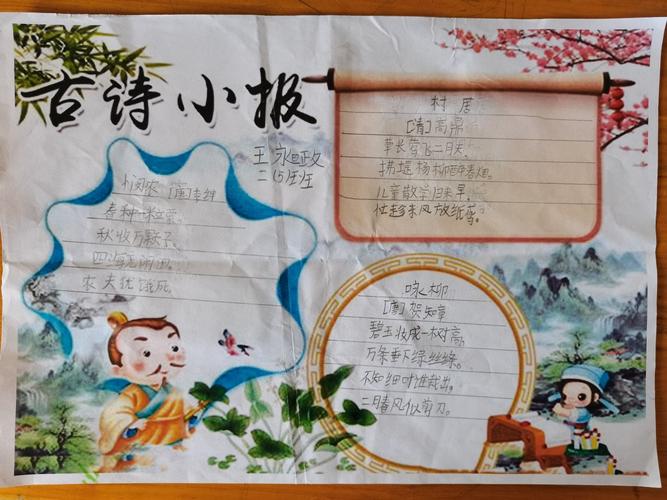 古诗小报
王永政
二(5)班
悯农 [唐]李绅
春种一粒粟,
秋收万颗子,
四海无闲田,
农夫犹饿死。
村居
[清]高鼎
草长莺飞二月天,
拂堤杨柳醉春烟。
儿童散学归来早,
忙趁东风放纸鸢。
咏柳
[唐]贺知章
碧玉妆成一树高,
万条垂下绿丝绦。
不知细叶谁裁出,
二月春风似剪刀。